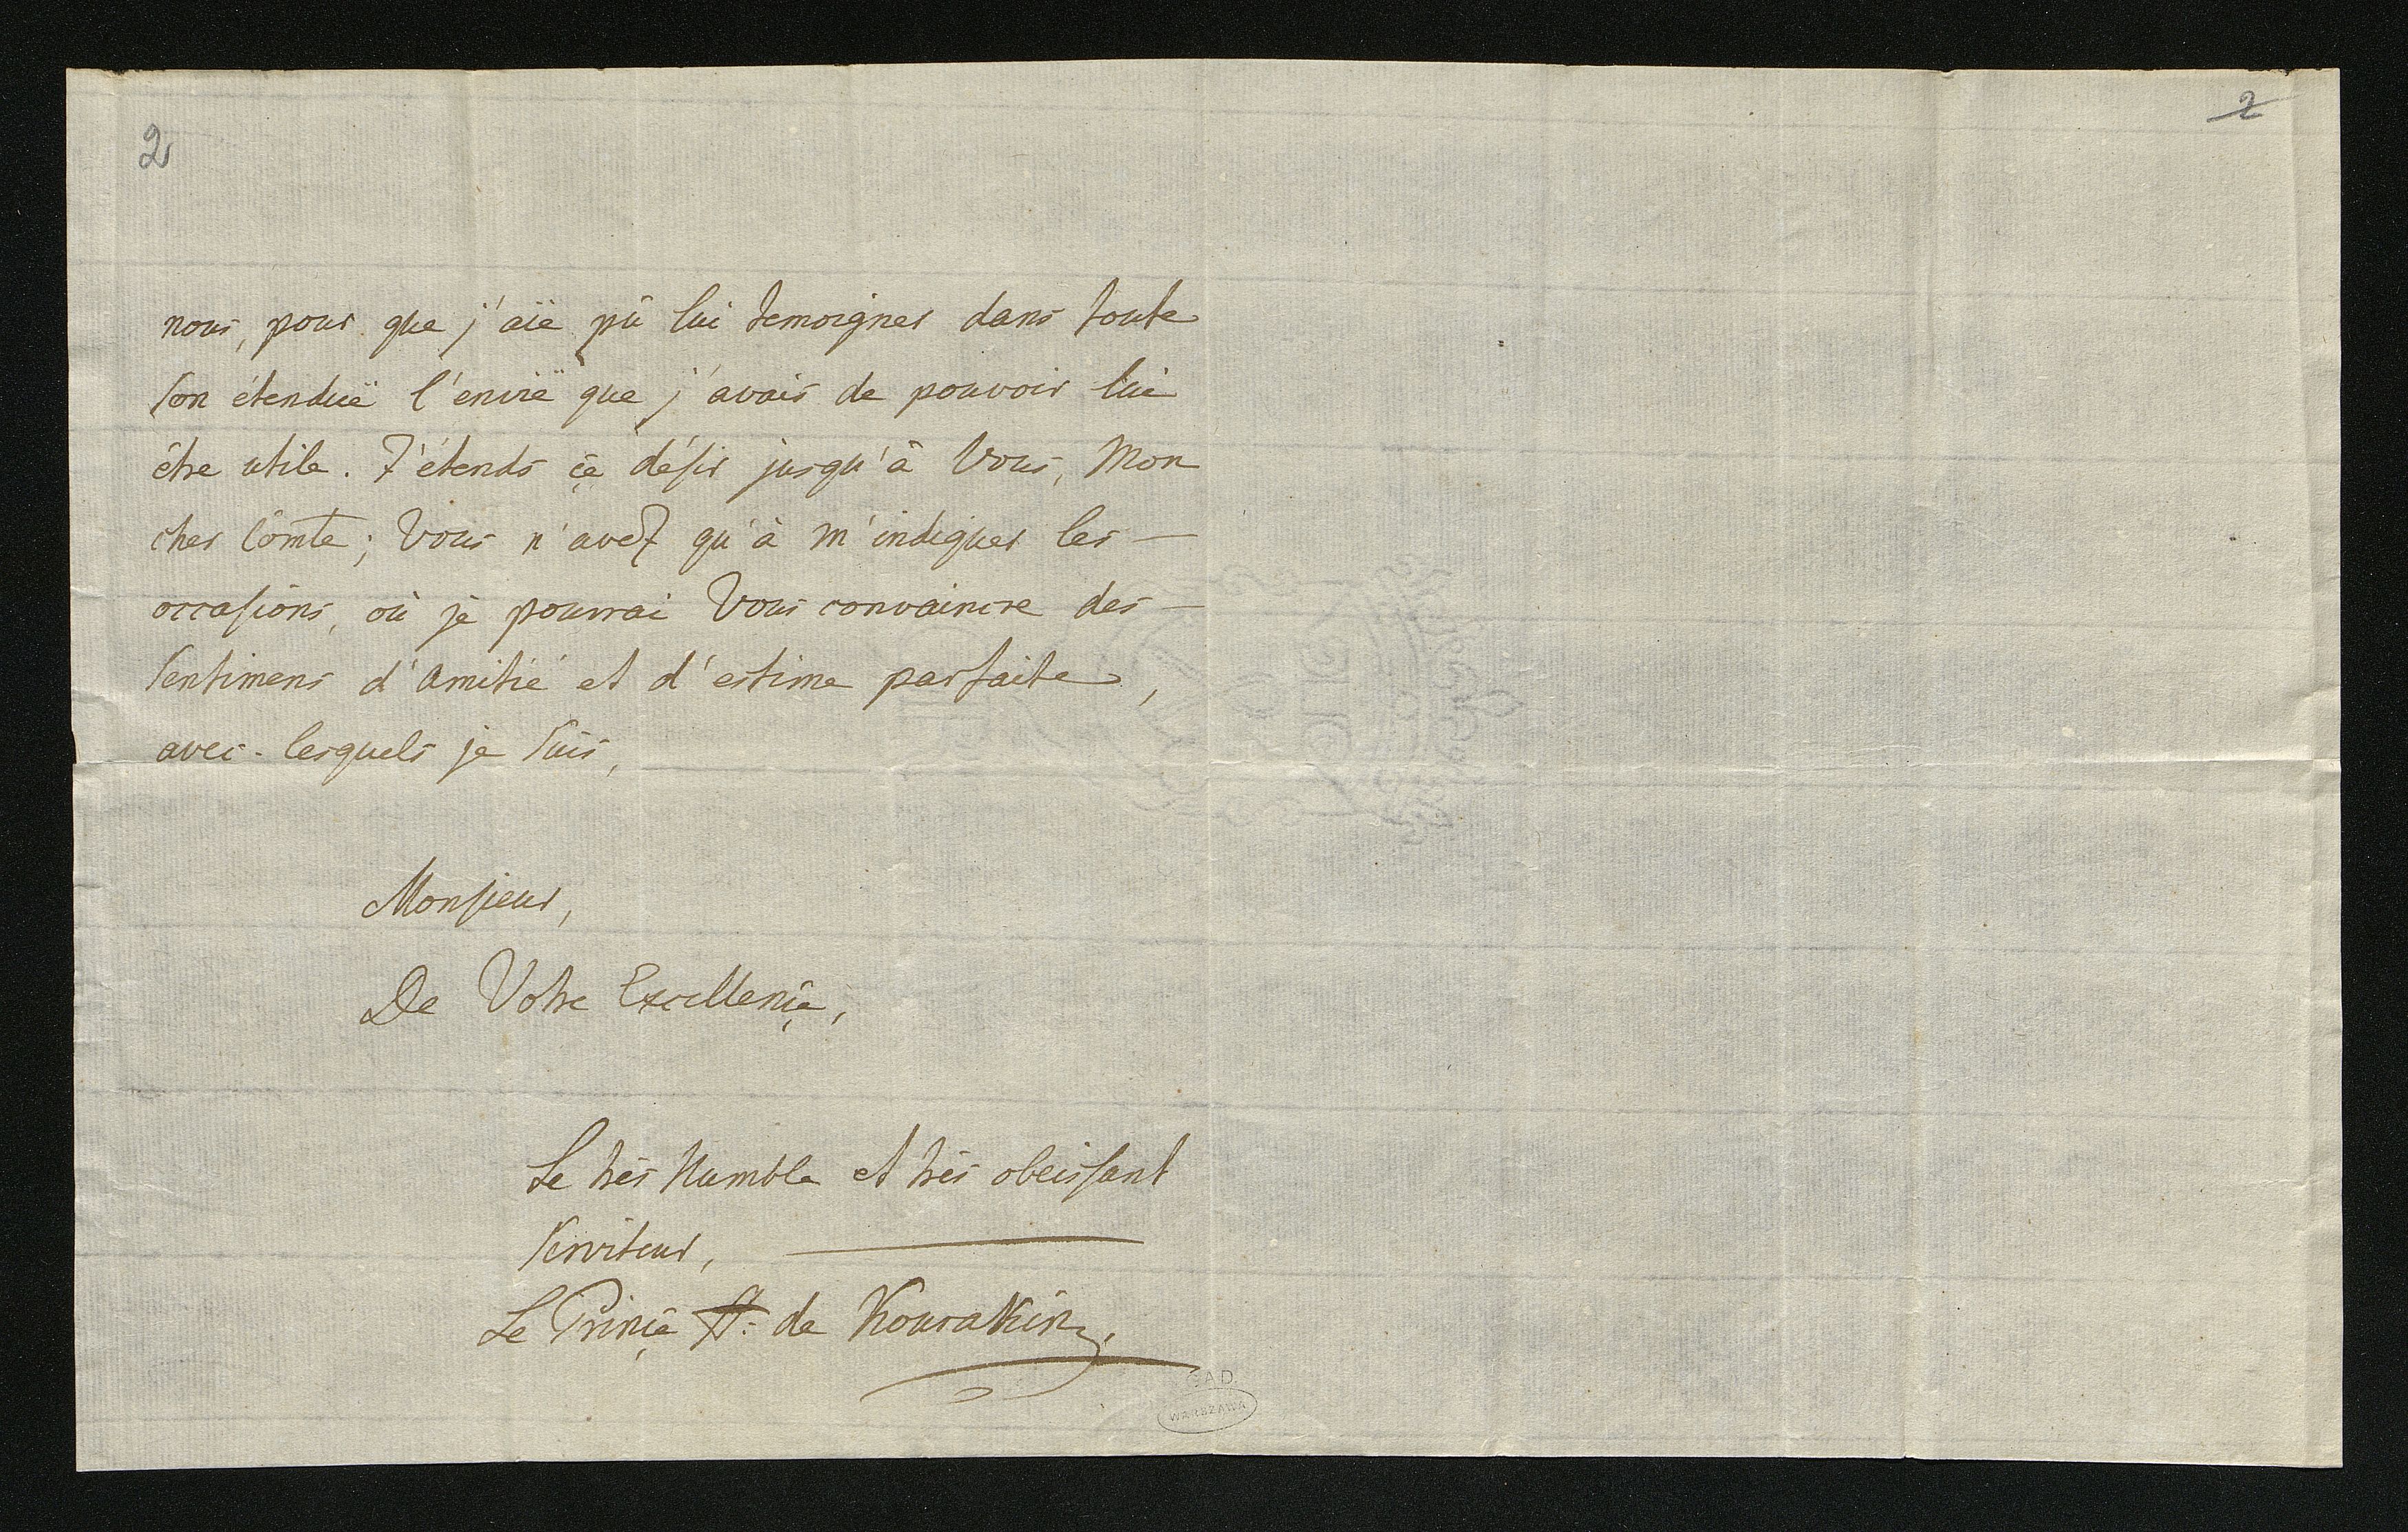 2
2
nous, pour que j'aïe pû lui temoigner dans toute
son étenduë l'envië que j'avais de pouvoir lui
être utile. J'étends ce désir jusqu'à Vous, Mon
cher Comte; Vous n'avez qu'à m'indiquer les —
occasions, où je pourrai Vous convaincre des —
Sentimens d'Amitié et d'estime parfaite,
avec lesquels je suis,
Monsieur,
De Votre Excellence,
Le très Humble et très obeissant
Serviteur,
Le Prince A: de Kourakin.
GAD
WARSZAWA